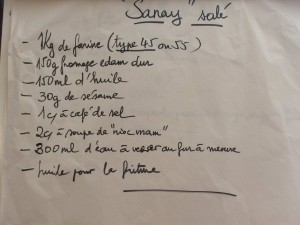 "Sanay" salé
- 1kg de farine (type 45 ou 55)
- 150g fromage edam dur
- 150ml d'huile
- 30g de sésame
- 1c à café de sel
- 2c à soupe de "nioc mam"
- 300ml d'eau à verser au fur à mesure
- huile pour la friture